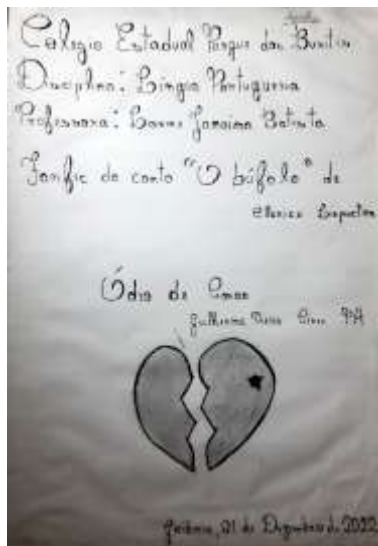 Colegio Estadual Parque dos Buritis
Disciplina: Língua Portuguesa
Professora: Janaina Batista
Fanfic do conto "O búfalo" de
Clarice Lispector
Ódio de Amor
Guilherme 9ºA
Goiânia, 01 de Dezembro de 2022